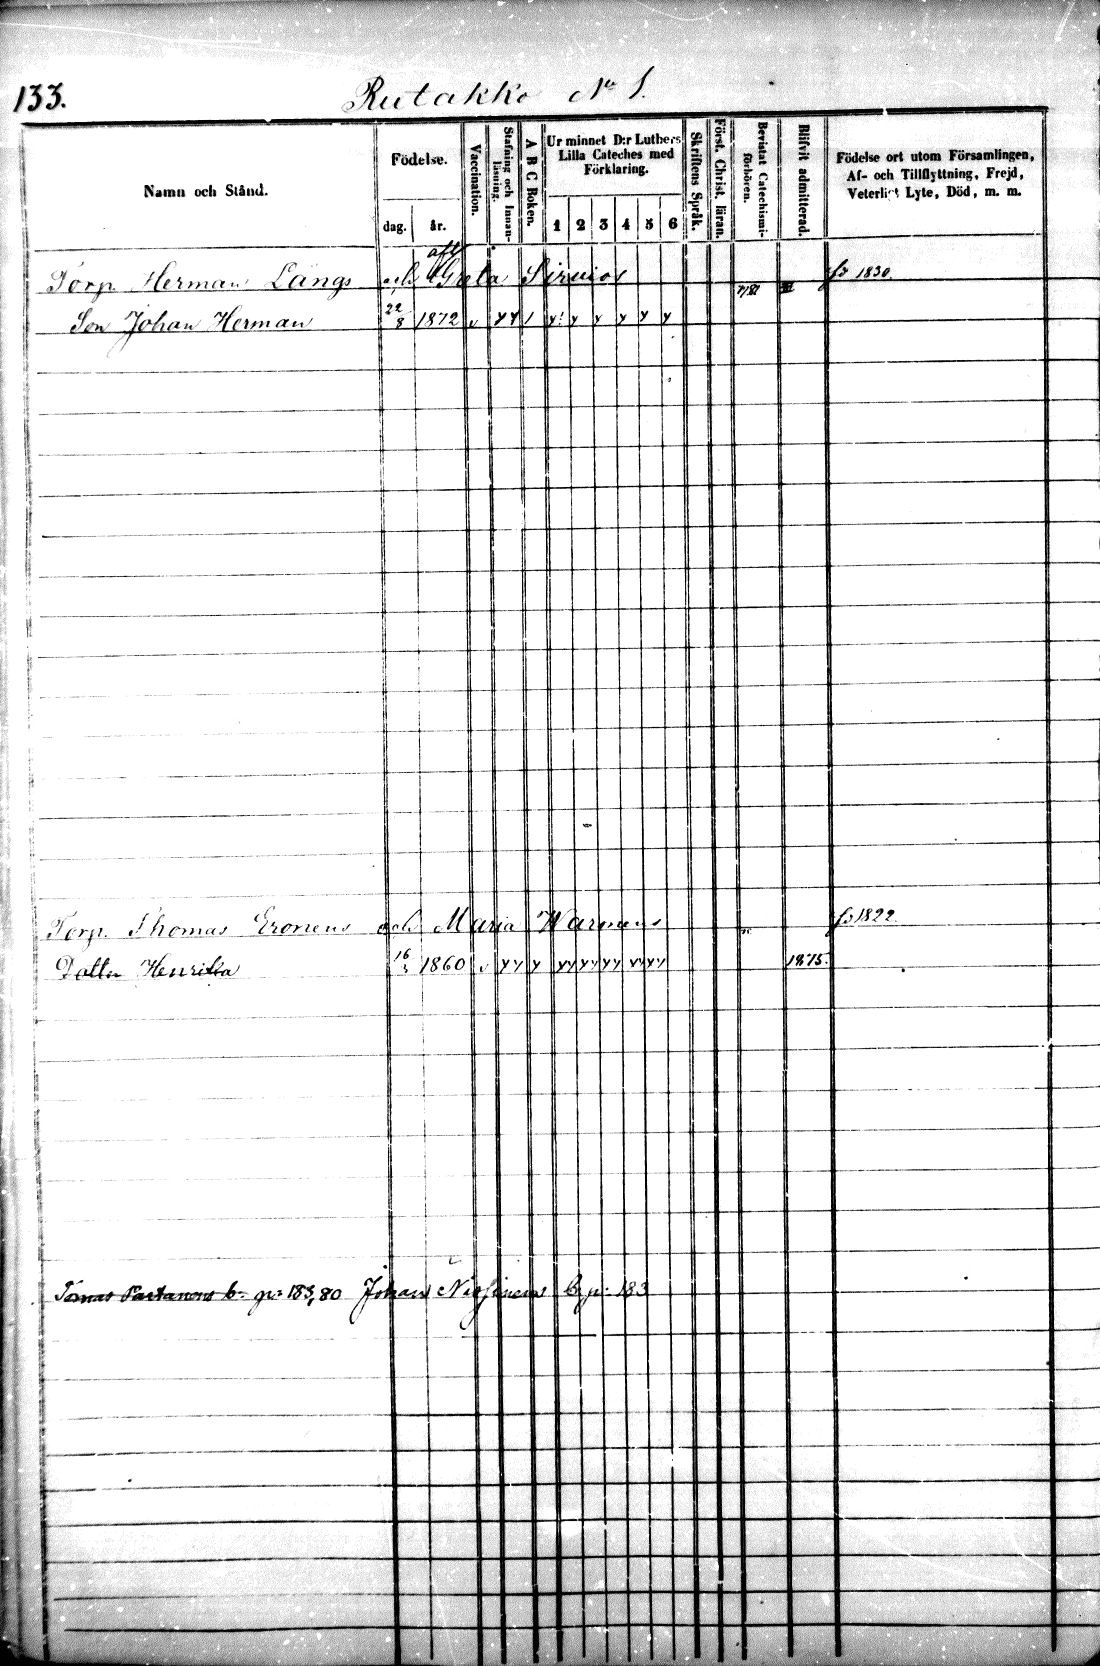 133.
Rutakko No 1.
Namn och Stånd.
Födelse.
dag.
år.
Vaccination.
Stafning och Innan-
läsning.
A B C Boken.
Ur minnet D:r Luthers
Lilla Cateches med
Förklaring.
1 2 3 4 5 6
Skriftens Språk.
Först. Christ. läran.
Bevistat Catechismi-
förhören.
Blifvit admitterad.
Födelse ort utom Församlingen,
Af- och Tillflyttning, Frejd,
Veterligt Lyte, Död, m. m.
Torp. Herman Längs och Greta Sirviös 1830.
Son Johan Herman 22/8 1872
Torp. Thomas Eronens och Maria Warmens 1822.
Dotter Henrika 16 1860 1875.
Tomas Partanens b. p: 183,80 Johan Nissinens b. p: 183